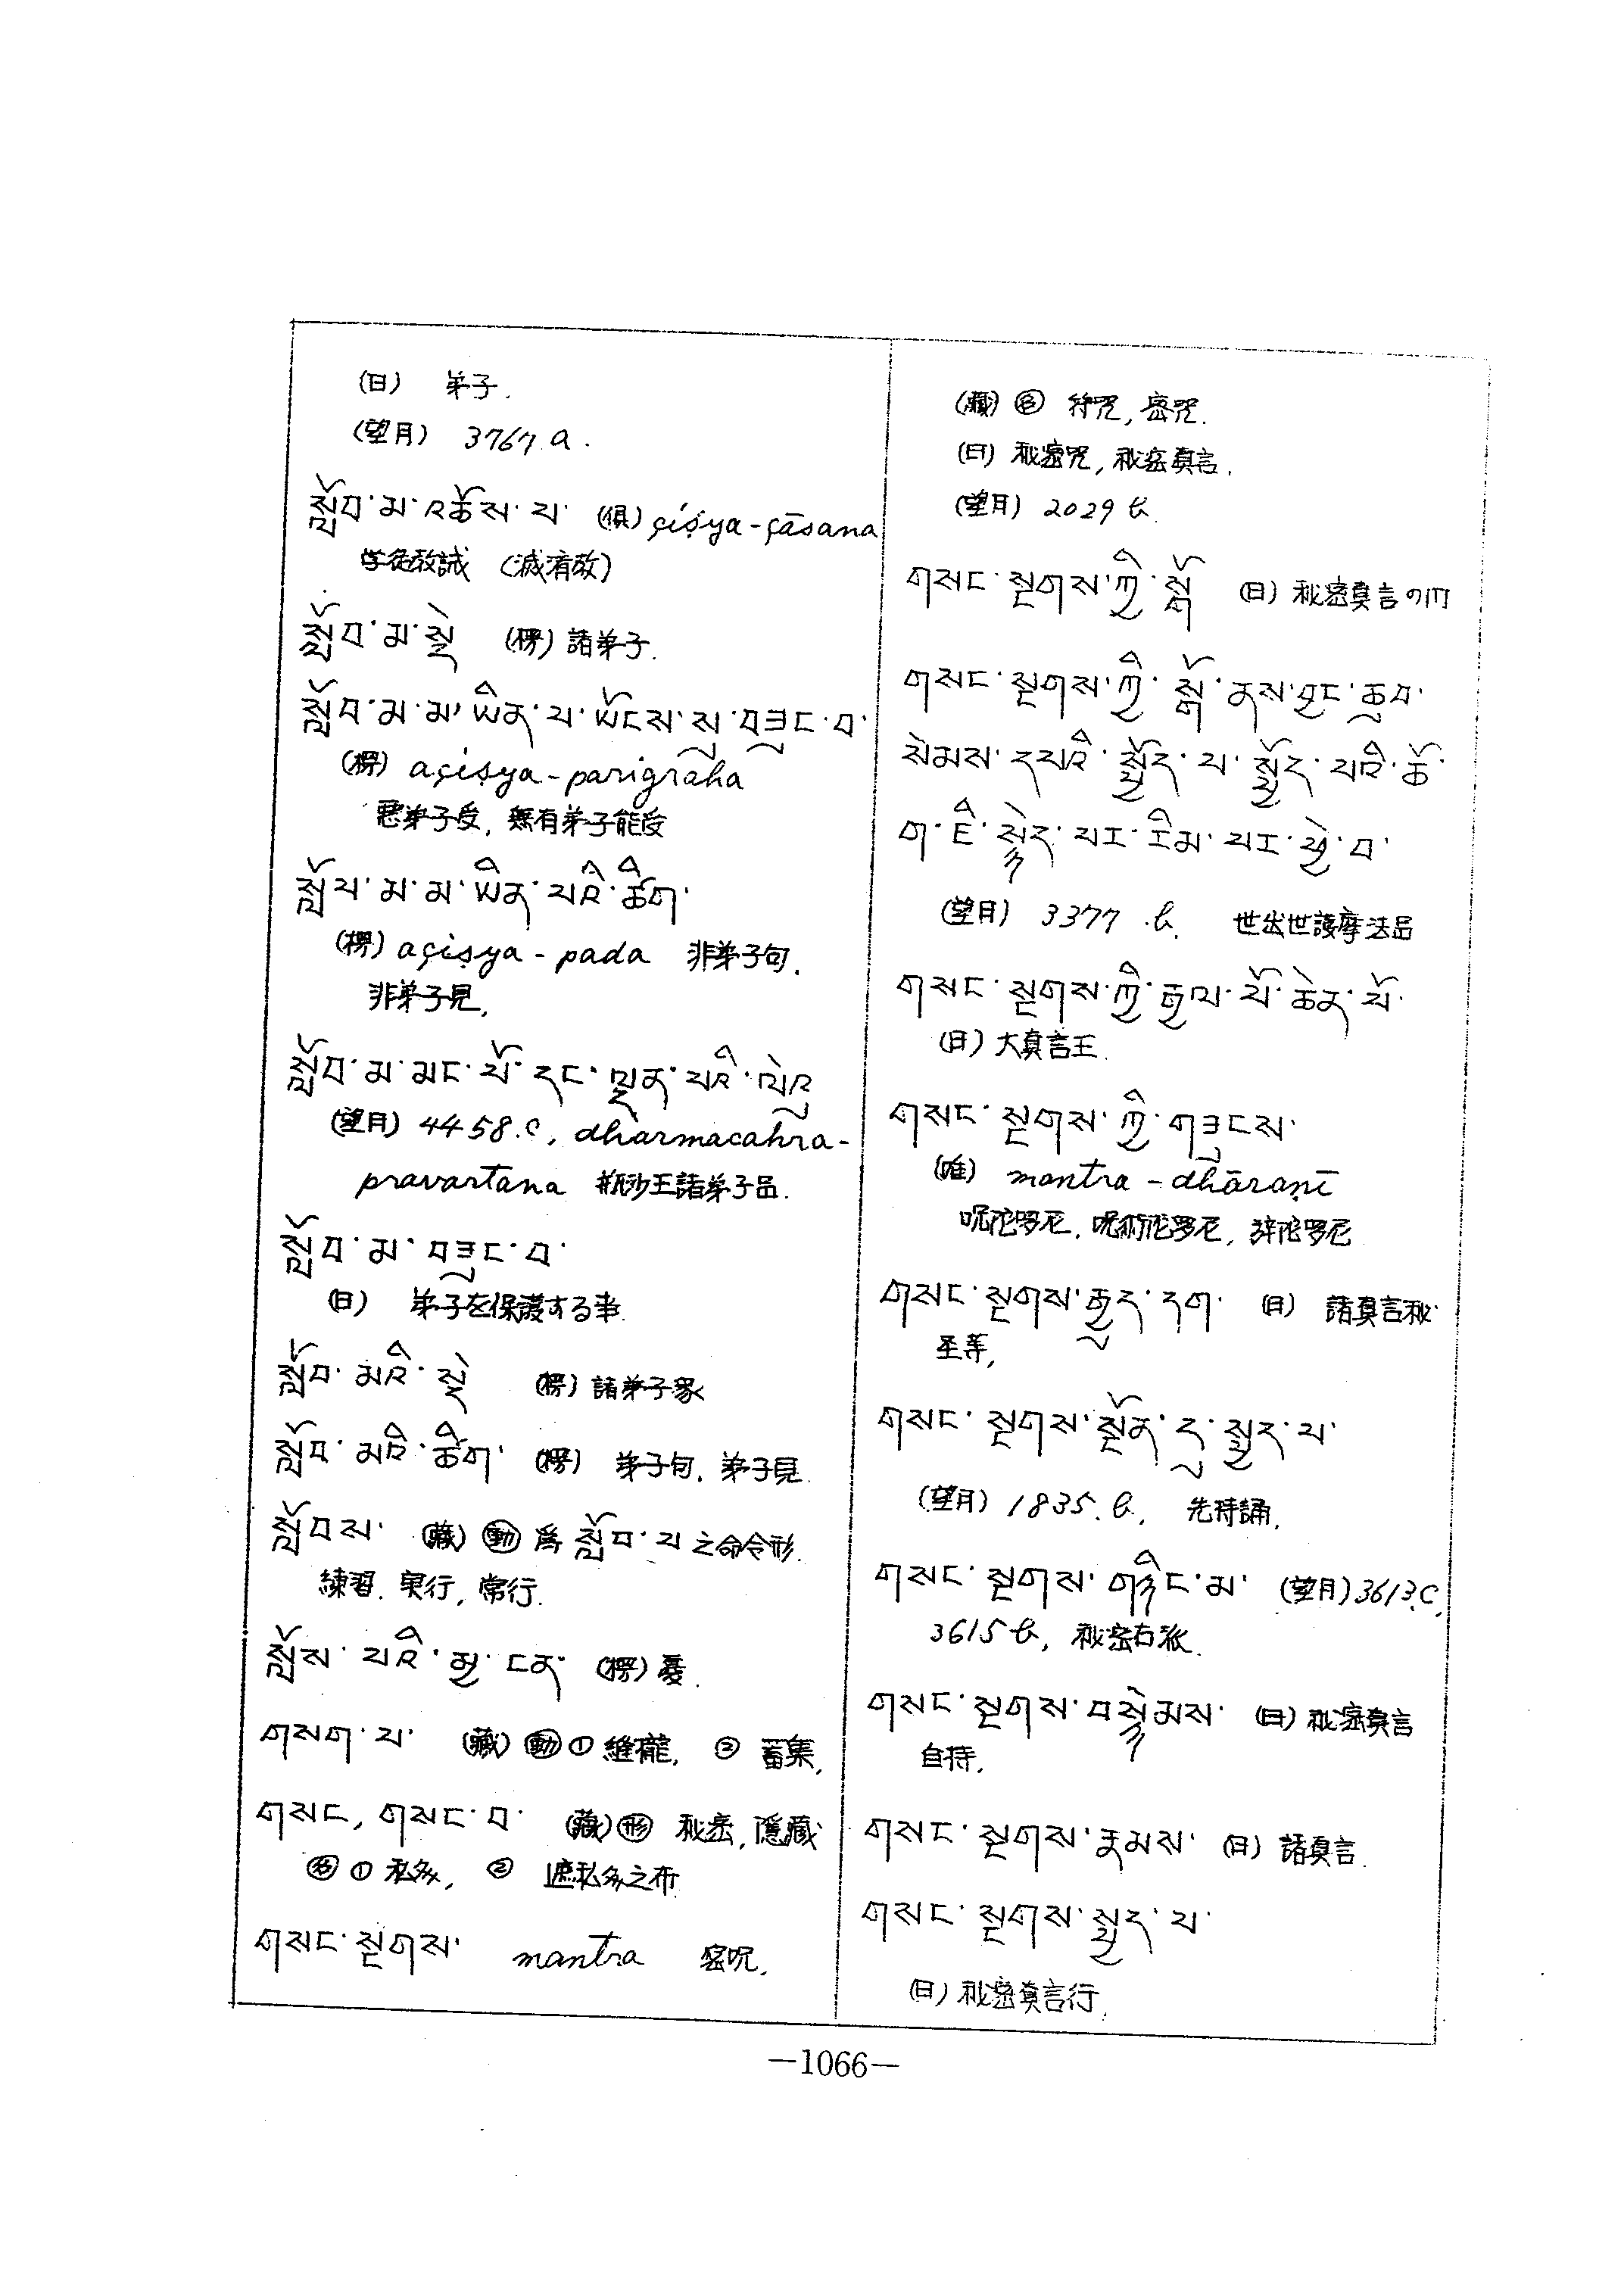 (日) 弟子.
(望月) 3767 a.
སློབ་མ་འཆོས་པ་ (倶) çiṣya-çāsana
学徒教誡 (滅有故)
སློབ་མ་སྡེ (楞) 諸弟子.
སློབ་མ་མ་ཡིན་པ་ཡོངས་སུ་བཟུང་བ་
(楞) açiṣya-parigraha
悪弟子受, 無有弟子能受
སློབ་མ་མ་ཡིན་པའི་ཚིག་
(楞) açiṣya-pada 非弟子句.
非弟子見,
སློབ་མ་མང་པོ་དང་ལྡན་པའི་ལེའུ
(望月) 4458.c, dharmacahra-
pravartana 瓶沙王諸弟子品.
སློབ་མ་བཟུང་བ་
(日) 弟子を保護する事.
སློབ་མའི་སྡེ (楞) 諸弟子衆
སློབ་མའི་ཚིག་ (楞) 弟子句, 弟子見.
སློབས་ (藏) 動 為 སློབ་པ 之命令形.
練習. 実行, 常行.
སློས་པའི་མྱ་ངན་ (楞) 憂.
གསག་པ་ (藏) 動 ① 縫, ② 蓄集,
གསང, གསང་བ་ (藏) 形 秘密, 隠蔵
名 ① 私多, ② 遮私多之布
གསང་སྔགས་ mantra 密呪,
(藏) 名 符咒, 密咒.
(日) 秘密咒, 秘密真言.
(望月) 2029 b.
གསང་སྔགས་ཀྱི་སྒོ (日) 秘密真言の門
གསང་སྔགས་ཀྱི་སྒོ་ནས་བྱང་ཆུབ་
སེམས་དཔའི་སྤྱོད་པ་སྤྱོད་པའི་ཚོ་
ག་ཇི་སྙེད་པར་རིམ་པར་ཕྱེ་བ་
(望月) 3377.b. 世出世護摩法品
གསང་སྔགས་ཀྱི་རྒྱལ་པོ་ཆེན་པོ་
(日) 大真言王.
གསང་སྔགས་ཀྱི་གཟུངས་
(唯) mantra-dhāraṇī
呪陀羅尼, 呪術陀羅尼, 陀羅尼
གསང་སྔགས་རྒྱུད་དག་ (日) 諸真言秘
至等,
གསང་སྔགས་སྔོན་དུ་སྤྱད་པ་
(望月) 1835.b, 先持誦,
གསང་སྔགས་གཉིང་མ་ (望月) 3613.c,
3615 b, 秘密右派.
གསང་སྔགས་བསྙེམས་ (日) 秘密真言
自持,
གསང་སྔགས་རྣམས་ (日) 諸真言.
གསང་སྔགས་སྤྱད་པ་
(日) 秘密真言行.
—1066—